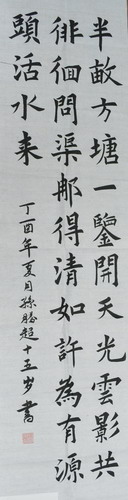 半畝方塘一鑒開天光雲影共
徘徊問渠那得清如許為有源
頭活水来
丁酉年夏月孫勝超十五岁書